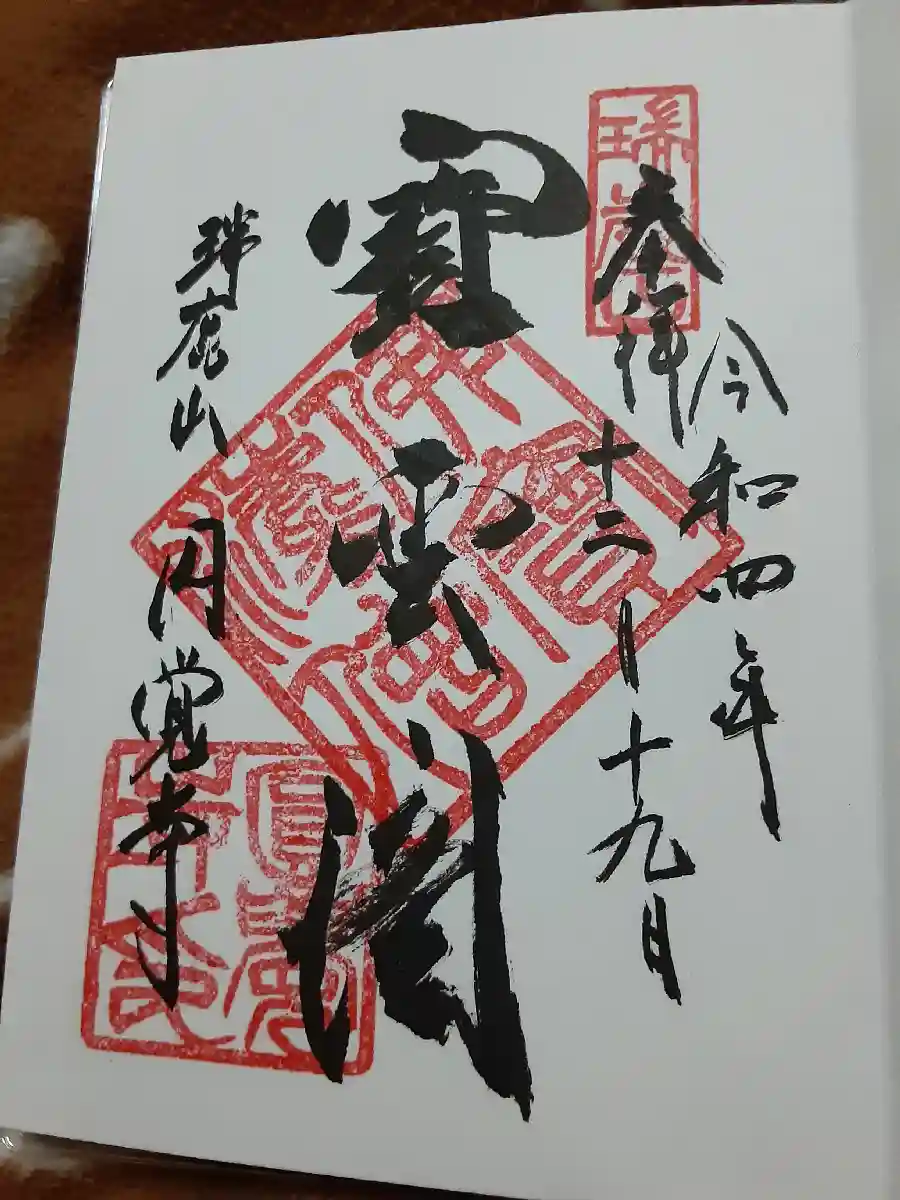 令和四年
奉拝
十二｜十九日
瑞鹿山
寶雲閣
瑞鹿山 円覚寺